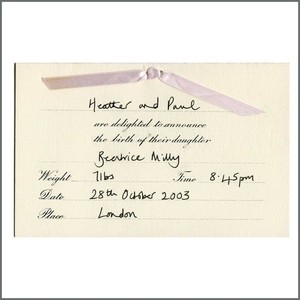 Heather and Paul
are delighted to announce
the birth of their daughter
Beatrice Milly
Weight 7lbs Time 8.45pm
Date 28th October 2003
Place London